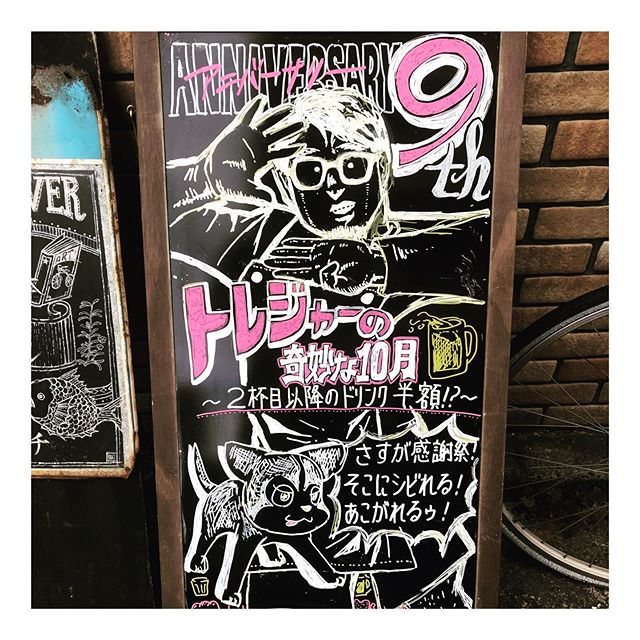 ANNAVERSARY
アニバーサリー
9th
トレジャーの
奇妙な10月
～2杯目以降のドリンク半額!?～
さすが感謝祭!
そこにシビれる!
あこがれるゥ!
VER
ART
チ